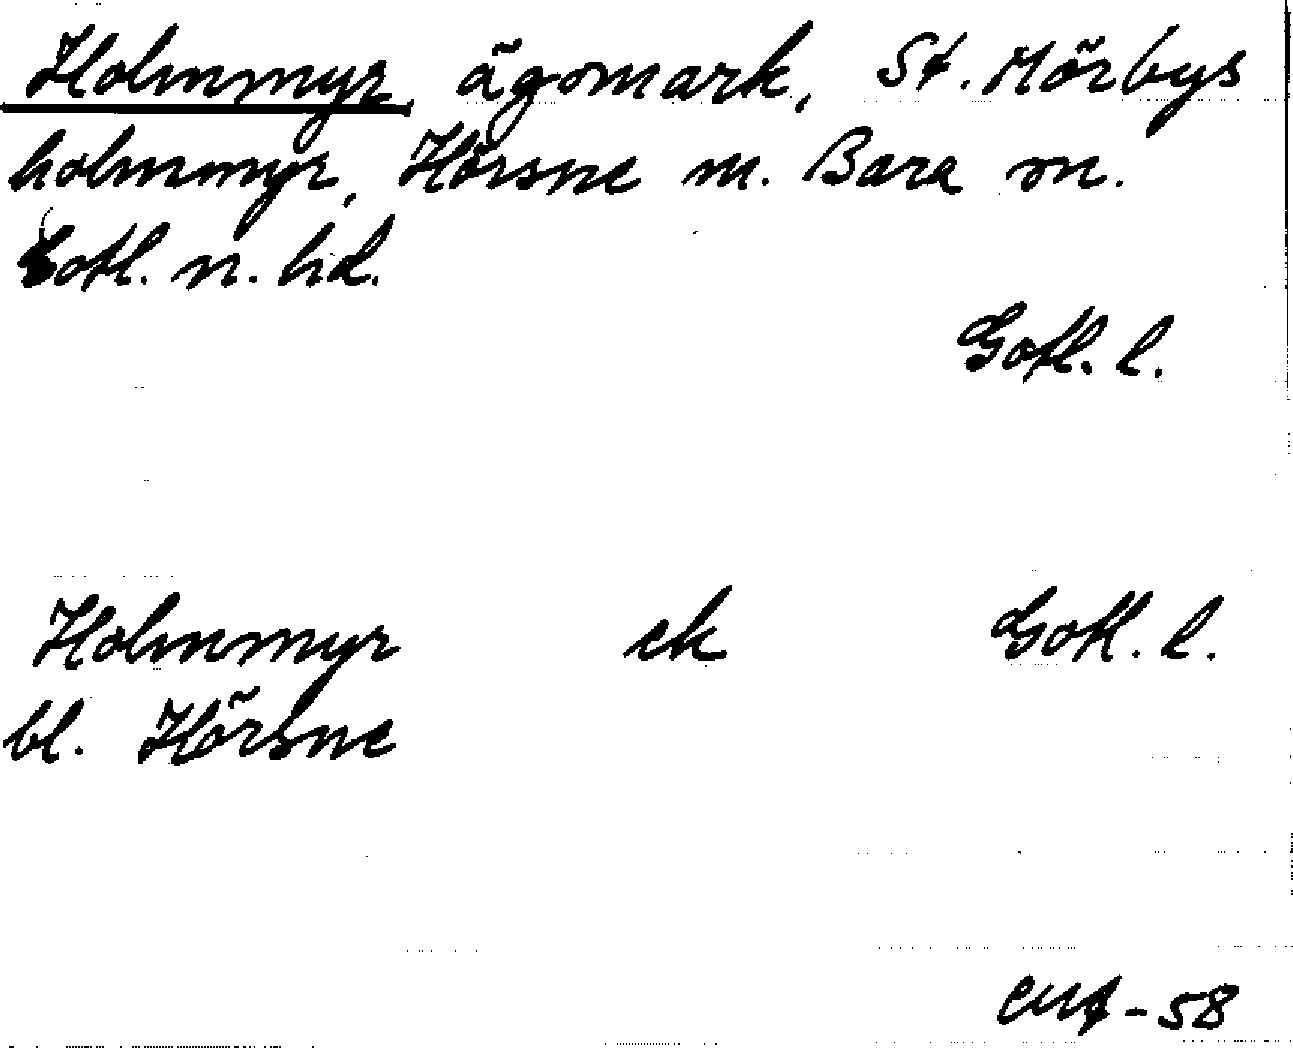 Holmmyr, ägomark, St. Mörbys
holmmyr, Hörsne m. Bara sn.
Gotl. n. hd.
Gotl. l.
Holmmyr ek Gotl. l.
bl. Hörsne
-58